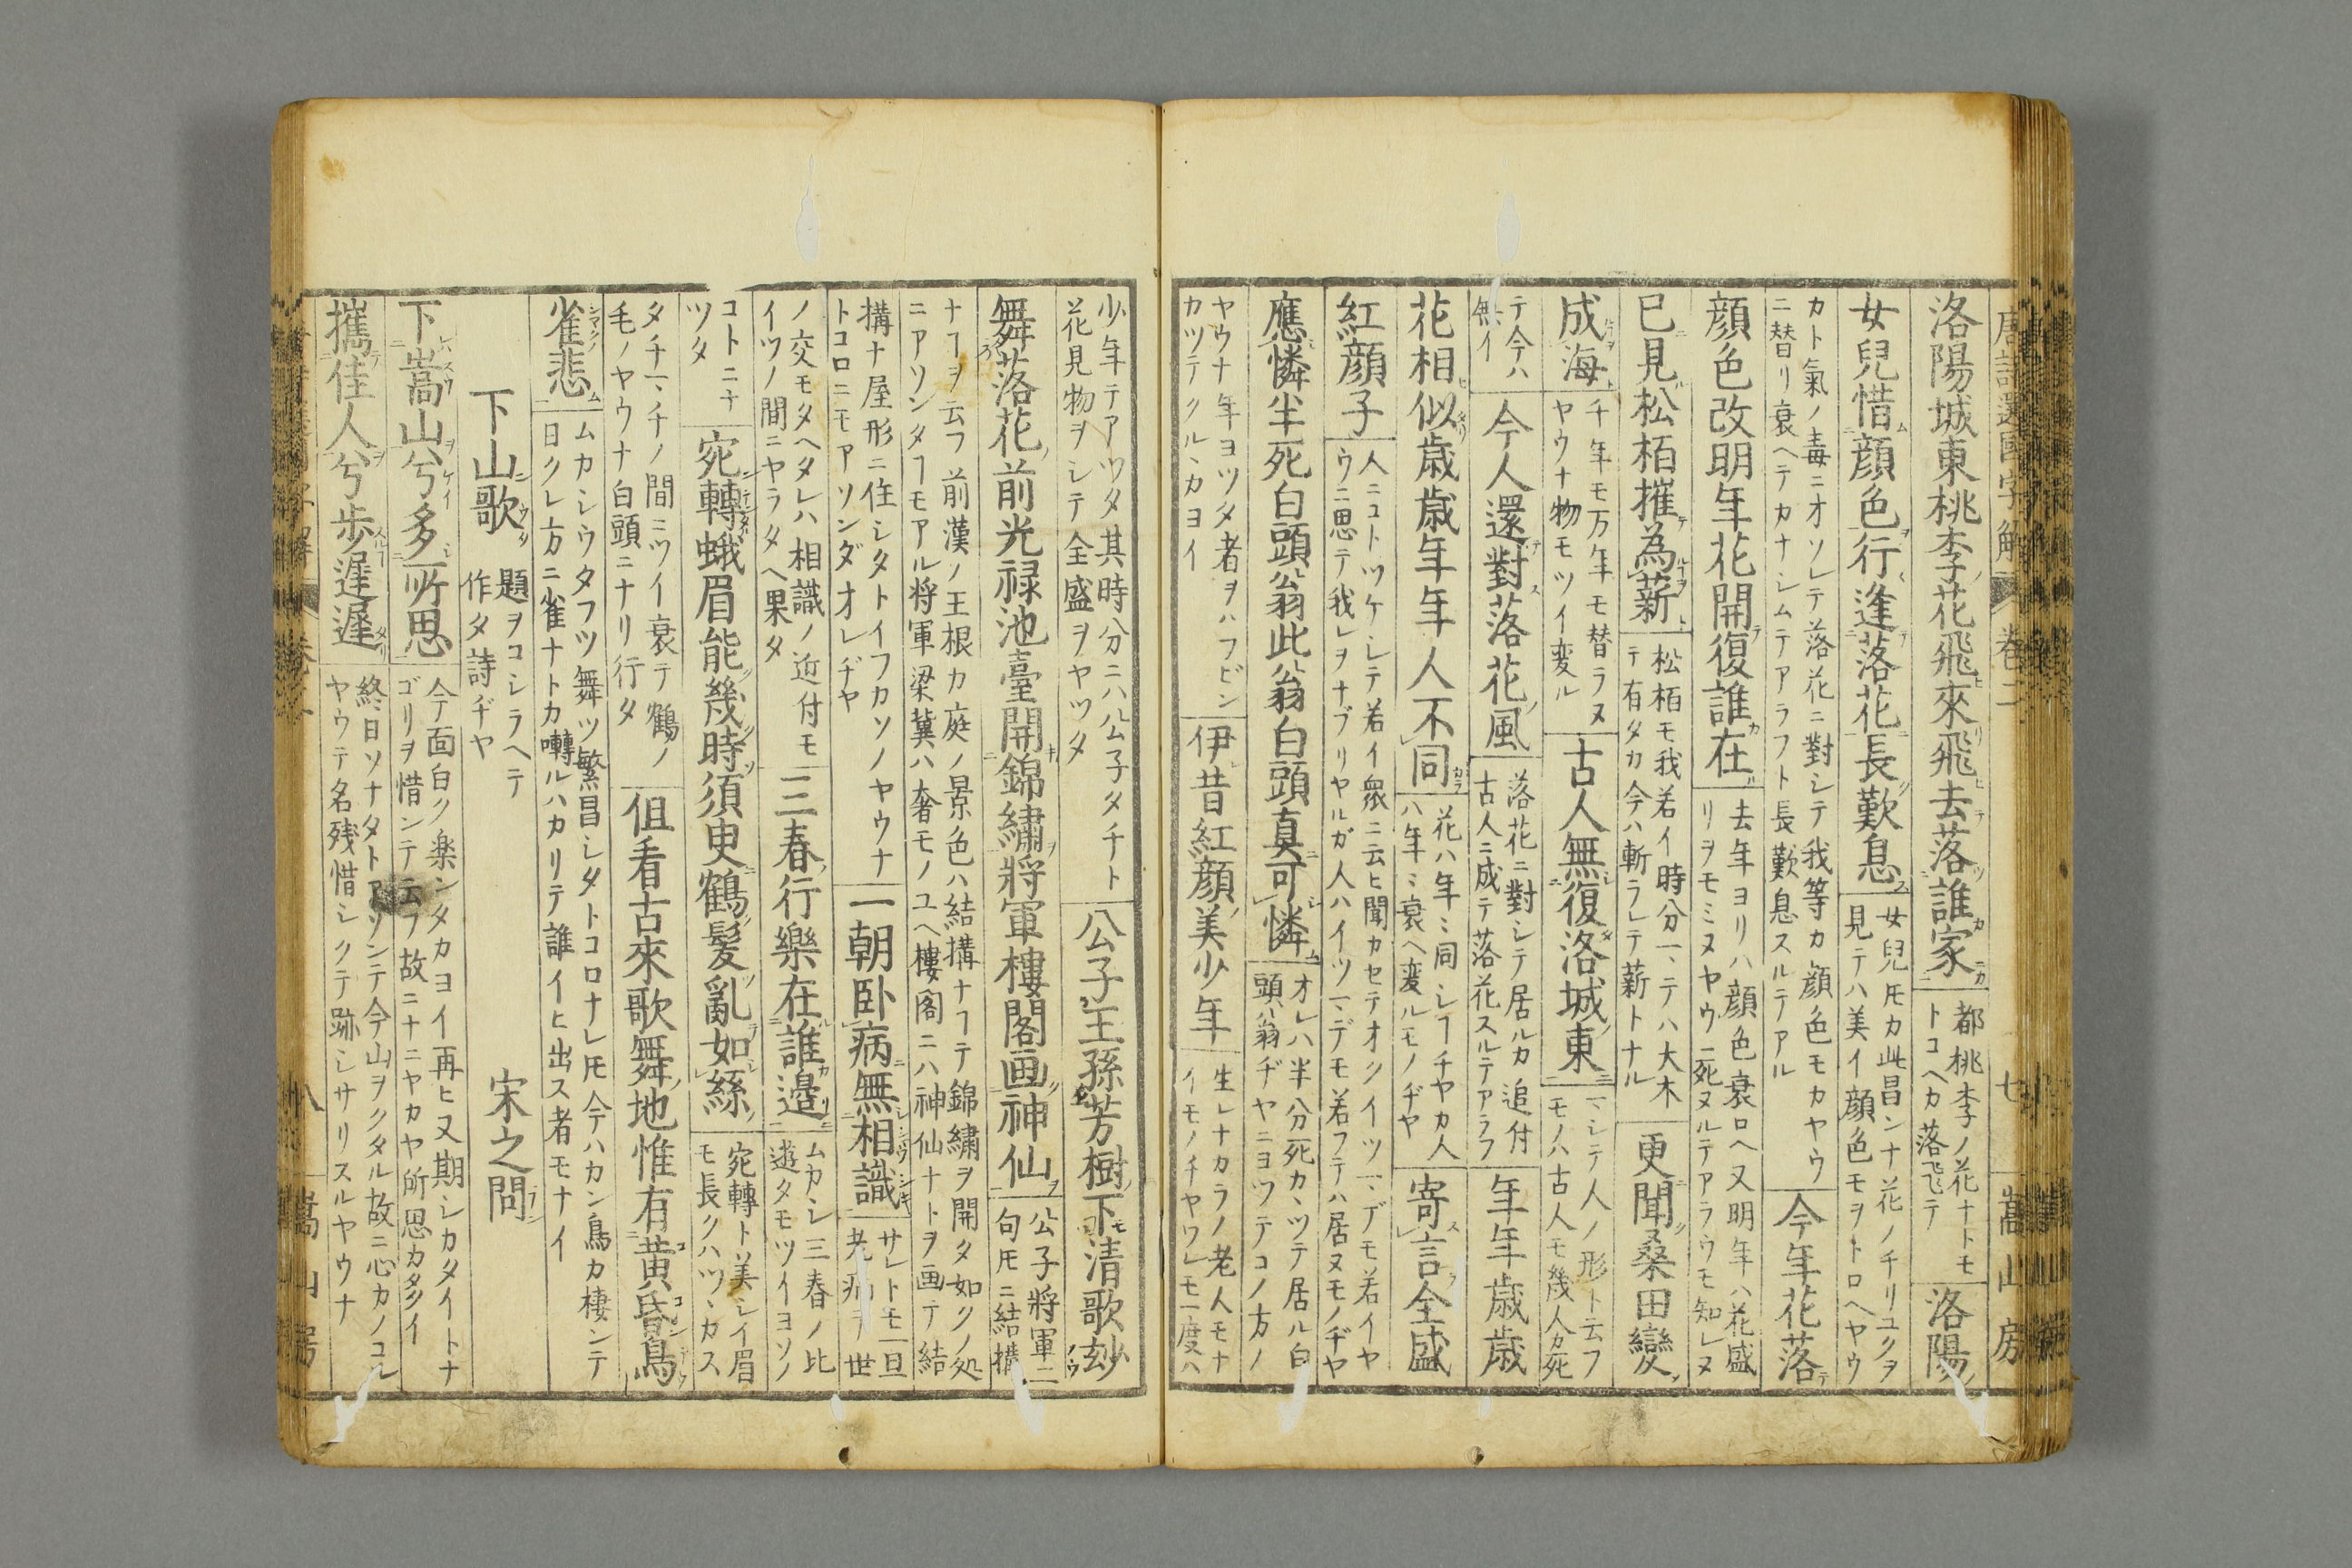 洛陽城東桃李花飛來飛去落誰家
都桃李ノ花ナトモ
トコヘカ落飛テ
洛陽
女兒惜顔色行逢落花長歎息
女兒㞮カ此昌ンナ花ノチリユクヲ
見テハ美イ顔色モヲトロヘヤウ
カト氣ノ毒ニオソレテ落花ニ對シテ我等カ顔色モカヤウ
ニ替リ衰ヘテカナシムテアラフト長歎息スルテアル
今年花落
顔色改明年花開復誰在
去年ヨリハ顔色衰ロヘ又明年ハ花盛
リヲモミヌヤウニ死ヌルテアラウモ知レヌ
已見松栢摧為薪
松栢モ我若イ時分ニテハ大木
テ有タカ今ハ斬ラレテ薪トナル
更聞桑田變
成海
千年モ万年モ替ラヌ
ヤウナ物モツイ変ル
古人無復洛城東
シテ人ノ形ト云フ
モノハ古人モ幾人カ死
テ今ハ
無イ
今人還對落花風
落花ニ對シテ居ルカ追付
古人ニ成テ落花スルテアラフ
年年歳歳
花相似歳歳年年人不同
花ハ年〻同シヿチヤカ人
ハ年〻衰ヘ変ルモノヂヤ
寄言全盛
紅顔子
人ニコトツケシテ若イ衆ニ云ヒ聞カセテオクイツマデモ若イヤ
ウニ思テ我レヲナブリヤルガ人ハイツマデモ若フテハ居ヌモノヂヤ
應憐半死白頭翁此翁白頭真可憐
オレハ半分死カヽツテ居ル白
頭翁ヂヤニヨツテコノ方ノ
ヤウナ年ヨツタ者ヲハフビン
カツテクルヽカヨイ
伊昔紅顔美少年
生レナカラノ老人モナ
イモノチヤワレモ一度ハ
少年テアツタ其時分ニハ公子タチト
花見物ヲシテ全盛ヲヤツタ
公子王孫芳樹下清歌玅
舞落花前光禄池臺開錦繡將軍樓閣画神仙
公子將軍二
句㞮ニ結搆
ナヿヲ云フ前漢ノ王根カ庭ノ景色ハ結搆ナヿテ錦繡ヲ開タ如クノ処
ニアソンタヿモアル将軍梁冀ハ奢モノユヘ樓閣ニハ神仙ナトヲ画テ結
搆ナ屋形ニ住シタトイフカソノヤウナ
トコロニモアソンダオレヂヤ
一朝卧病無相識
サレトモ一旦
老病ヲ世
ノ交モタヘタレハ相識ノ近付モ
イツノ間ニヤラタヘ果タ
三春行樂在誰邉
ムカシ三春ノ比
遊タモツイヨソノ
コトニナ
ツタ
宛轉蛾眉能幾時須臾鶴髪亂如絲
宛轉ト美シイ眉
モ長クハツヽカス
タチマチノ間ニツイ衰テ鶴ノ
毛ノヤウナ白頭ニナリ行タ
伹看古來歌舞地惟有黄昏鳥
雀悲
ムカシウタフツ舞ツ繁昌シタトコロナレ㞮今ハカン鳥カ棲ンテ
日クレ方ニ雀ナトカ囀ルハカリテ誰イヒ出ス者モナイ
下山歌
題ヲコシラヘテ
作タ詩ヂヤ
宋之問
下嵩山兮多所思
今面白ク楽ンタカヨイ再ヒ又期シカタイトナ
ゴリヲ惜ンテ云フ故ニナニヤカヤ所思カ多イ
攜佳人兮歩遅遅
終日ソナタトアソンテ今山ヲクタル故ニ心カノコレ
ヤウテ名残惜シクテ跡シサリスルヤウナ